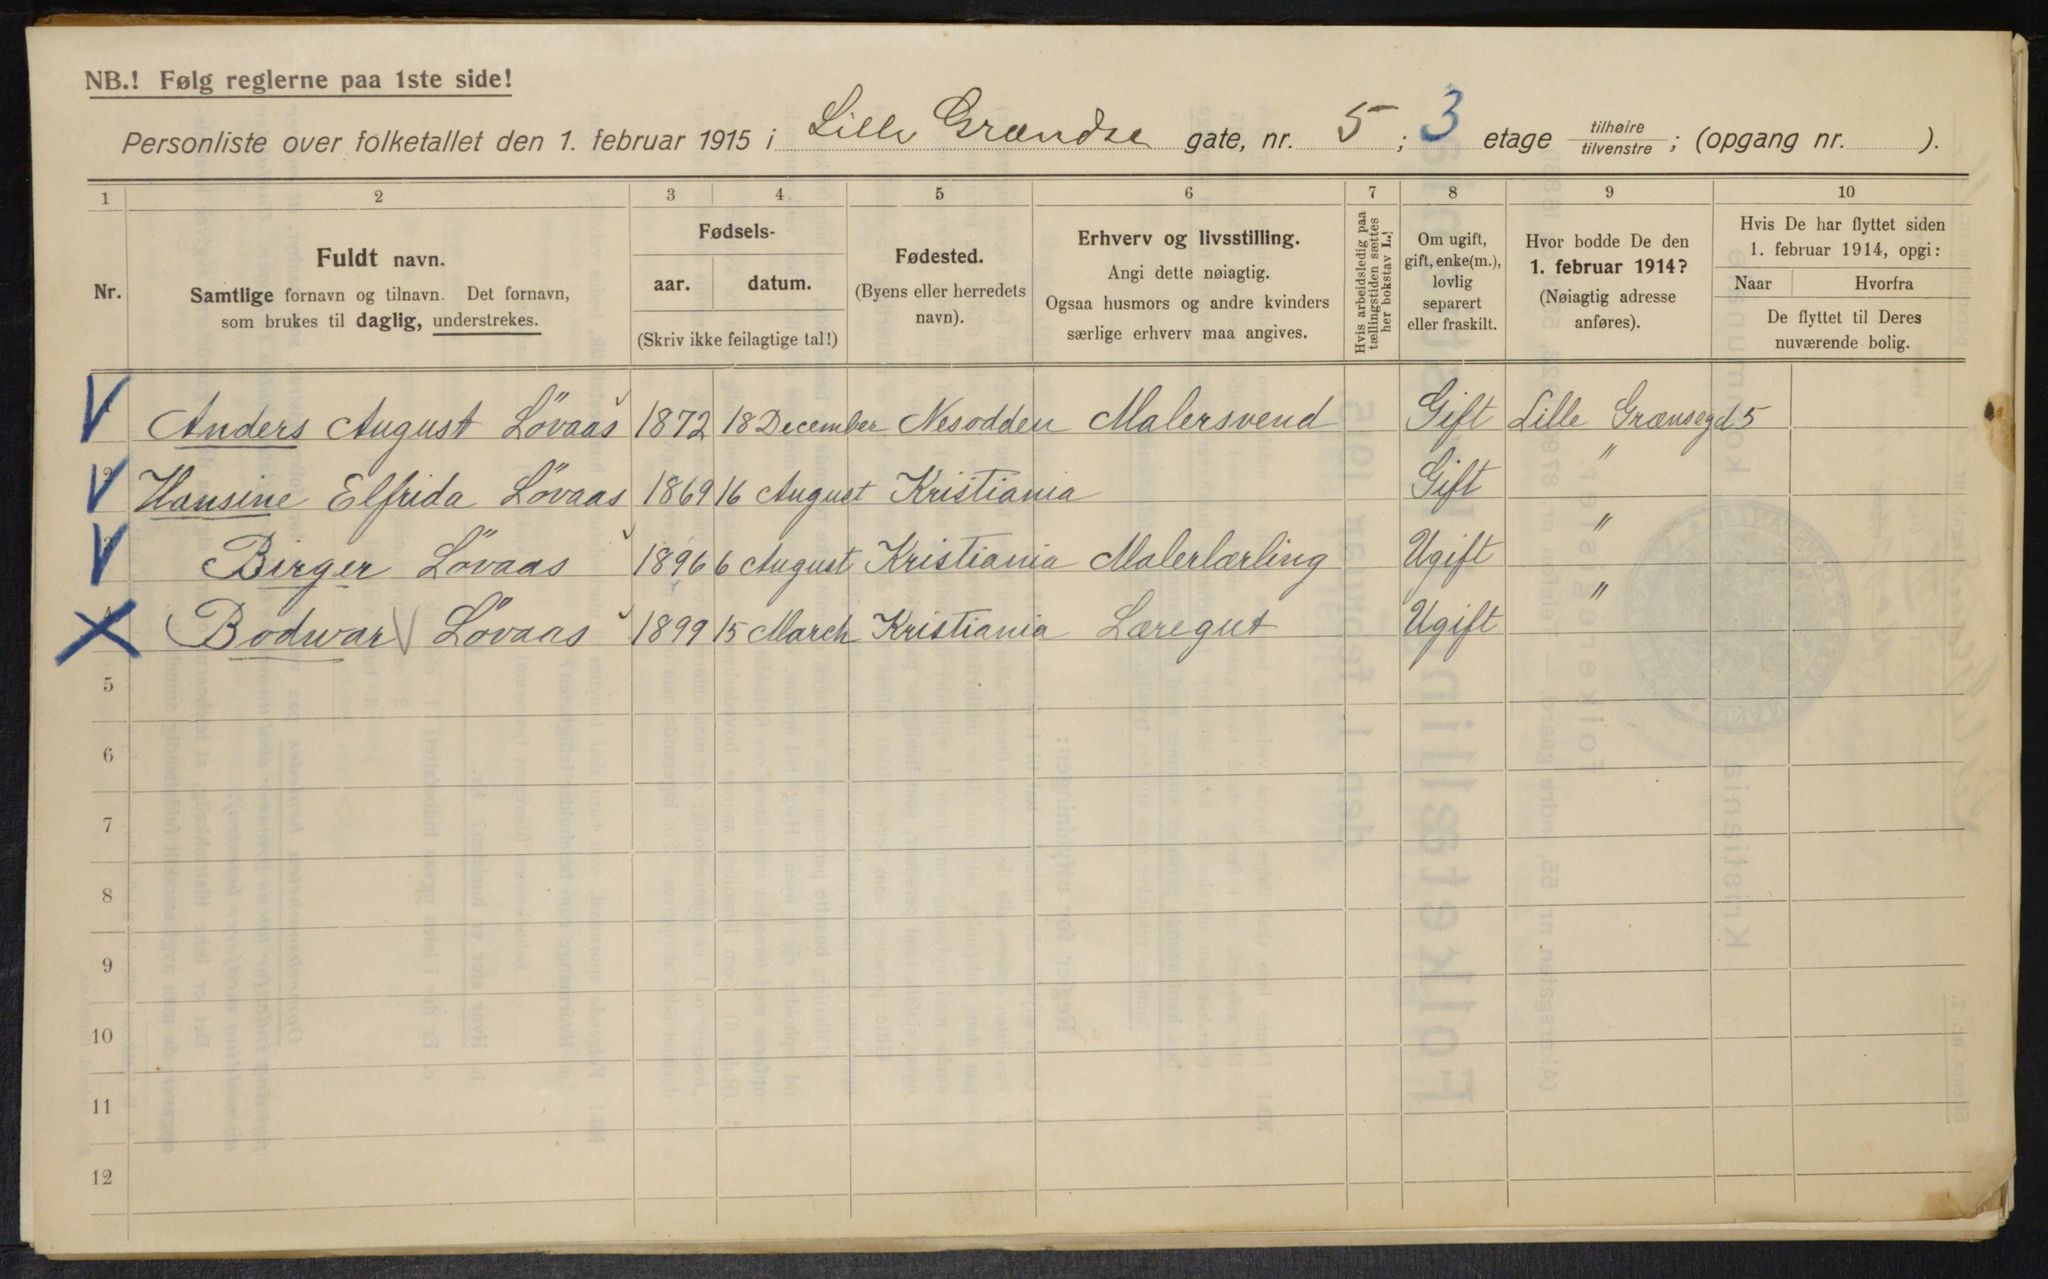 NB.! Følg reglerne paa 1ste side!
Personliste over folketallet den 1. februar 1915 i Lille Grændse gate, nr. 5; 3 etage tilhøire tilvenstre; (opgang nr. ).
1 2 3 4 5 6 7 8 9 10
Nr.
Fuldt navn.
Samtlige fornavn og tilnavn. Det fornavn,
som brukes til daglig, understrekes.
Fødsels-
aar. datum.
(Skriv ikke feilagtige tal!)
Fødested.
(Byens eller herredets
navn).
Erhverv og livsstilling.
Angi dette nøiagtig.
Ogsaa husmors og andre kvinders
særlige erhverv maa angives.
Hvis arbeidsledig paa
tællingstiden sættes
her bokstav L.!
Om ugift,
gift, enke(m.),
lovlig
separert
eller fraskilt.
Hvor bodde De den
1. februar 1914?
(Nøiagtig adresse
anføres).
Hvis De har flyttet siden
1. februar 1914, opgi:
Naar Hvorfra
De flyttet til Deres
nuværende bolig.
Anders August Lövaas 1872 18 December Nesodden Malersvend Gift Lille Grænsegd 5
2 Hansine Elfrida Lövaas 1869 16 August Kristiania Gift "
3 Birger Lövaas 1896 6 August Kristiania Malerlærling Ugift "
4 Bodwar Lövaas 1899 15 March Kristiania Læregut Ugift "
5
6
7
8
9
10
11
12